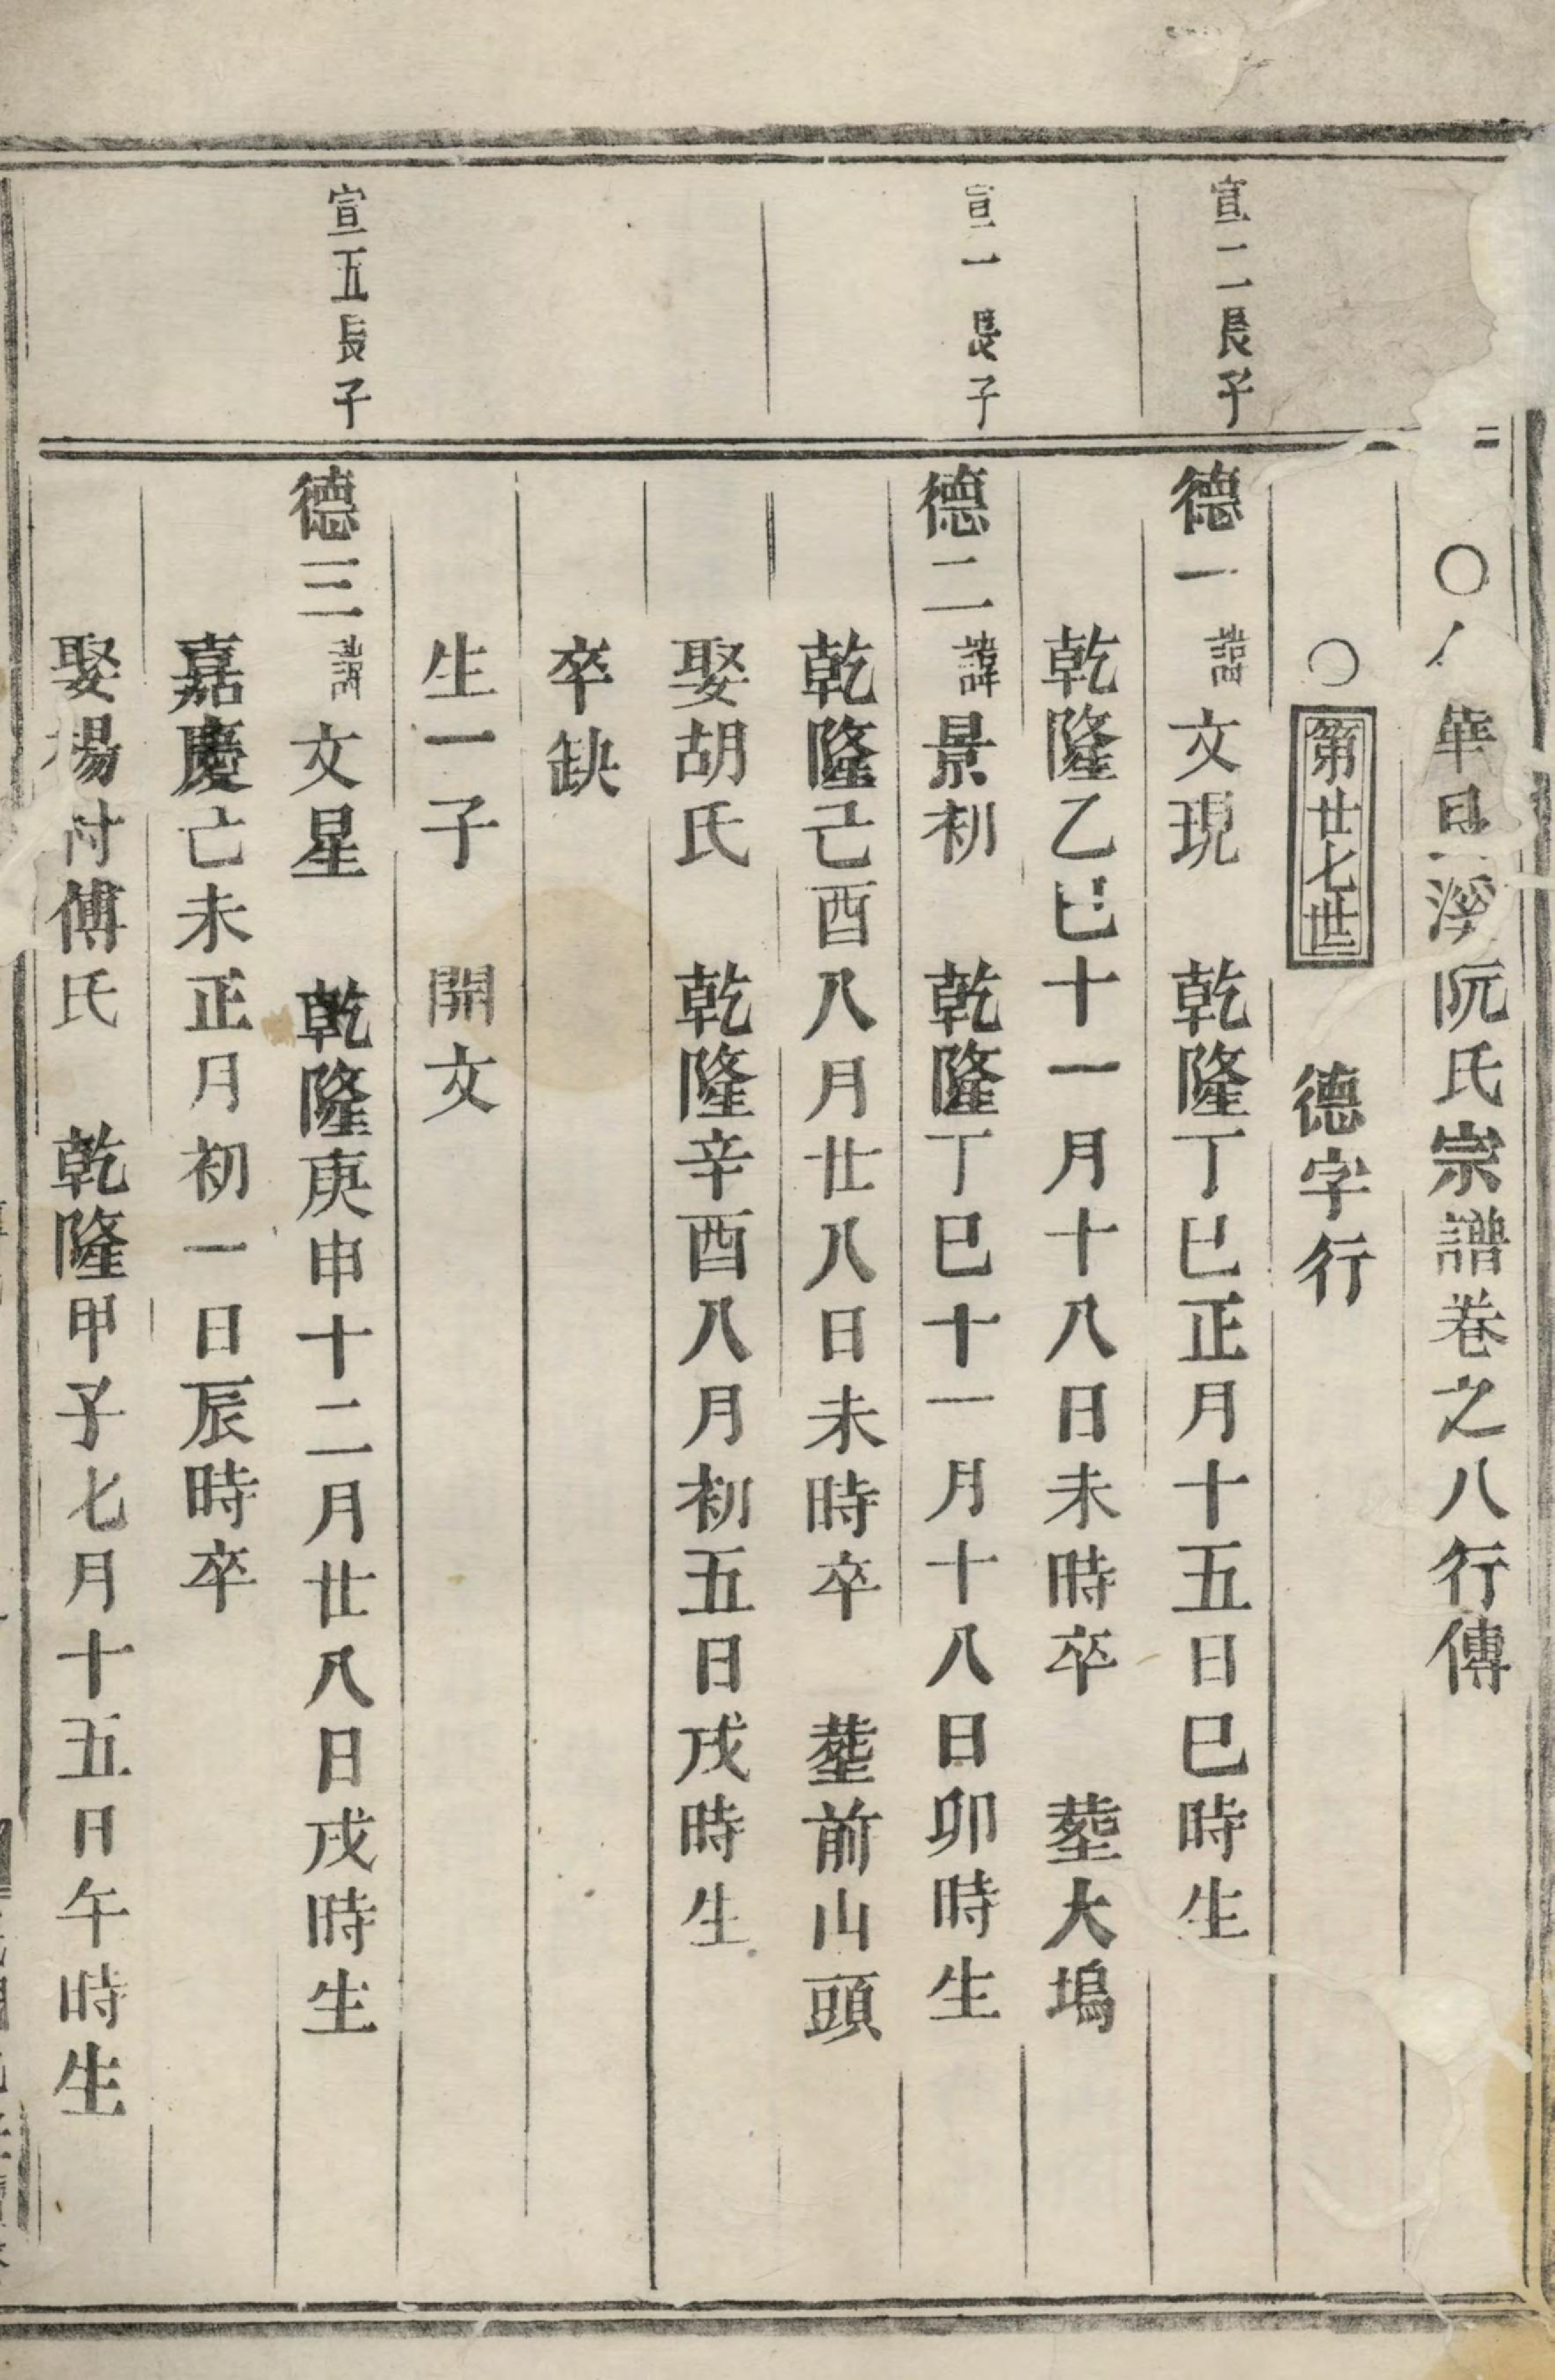 華
溪阮氏宗譜卷之八行傳
第廿七世
德字行
宣二長子
德一諱文現 乾隆丁巳正月十五日巳時生
乾隆乙巳十一月十八日未時卒 塟大塢
宣一長子
德二諱景初 乾隆丁巳十一月十八日卯時生
乾隆己酉八月廿八日未時卒 塟前山頭
娶胡氏 乾隆辛酉八月初五日戌時生
卒缺
生一子 開文
宣五長子
德三諱文星 乾隆庚申十二月廿八日戌時生
嘉慶己未正月初一日辰時卒
娶楊村傅氏 乾隆甲子七月十五日午時生